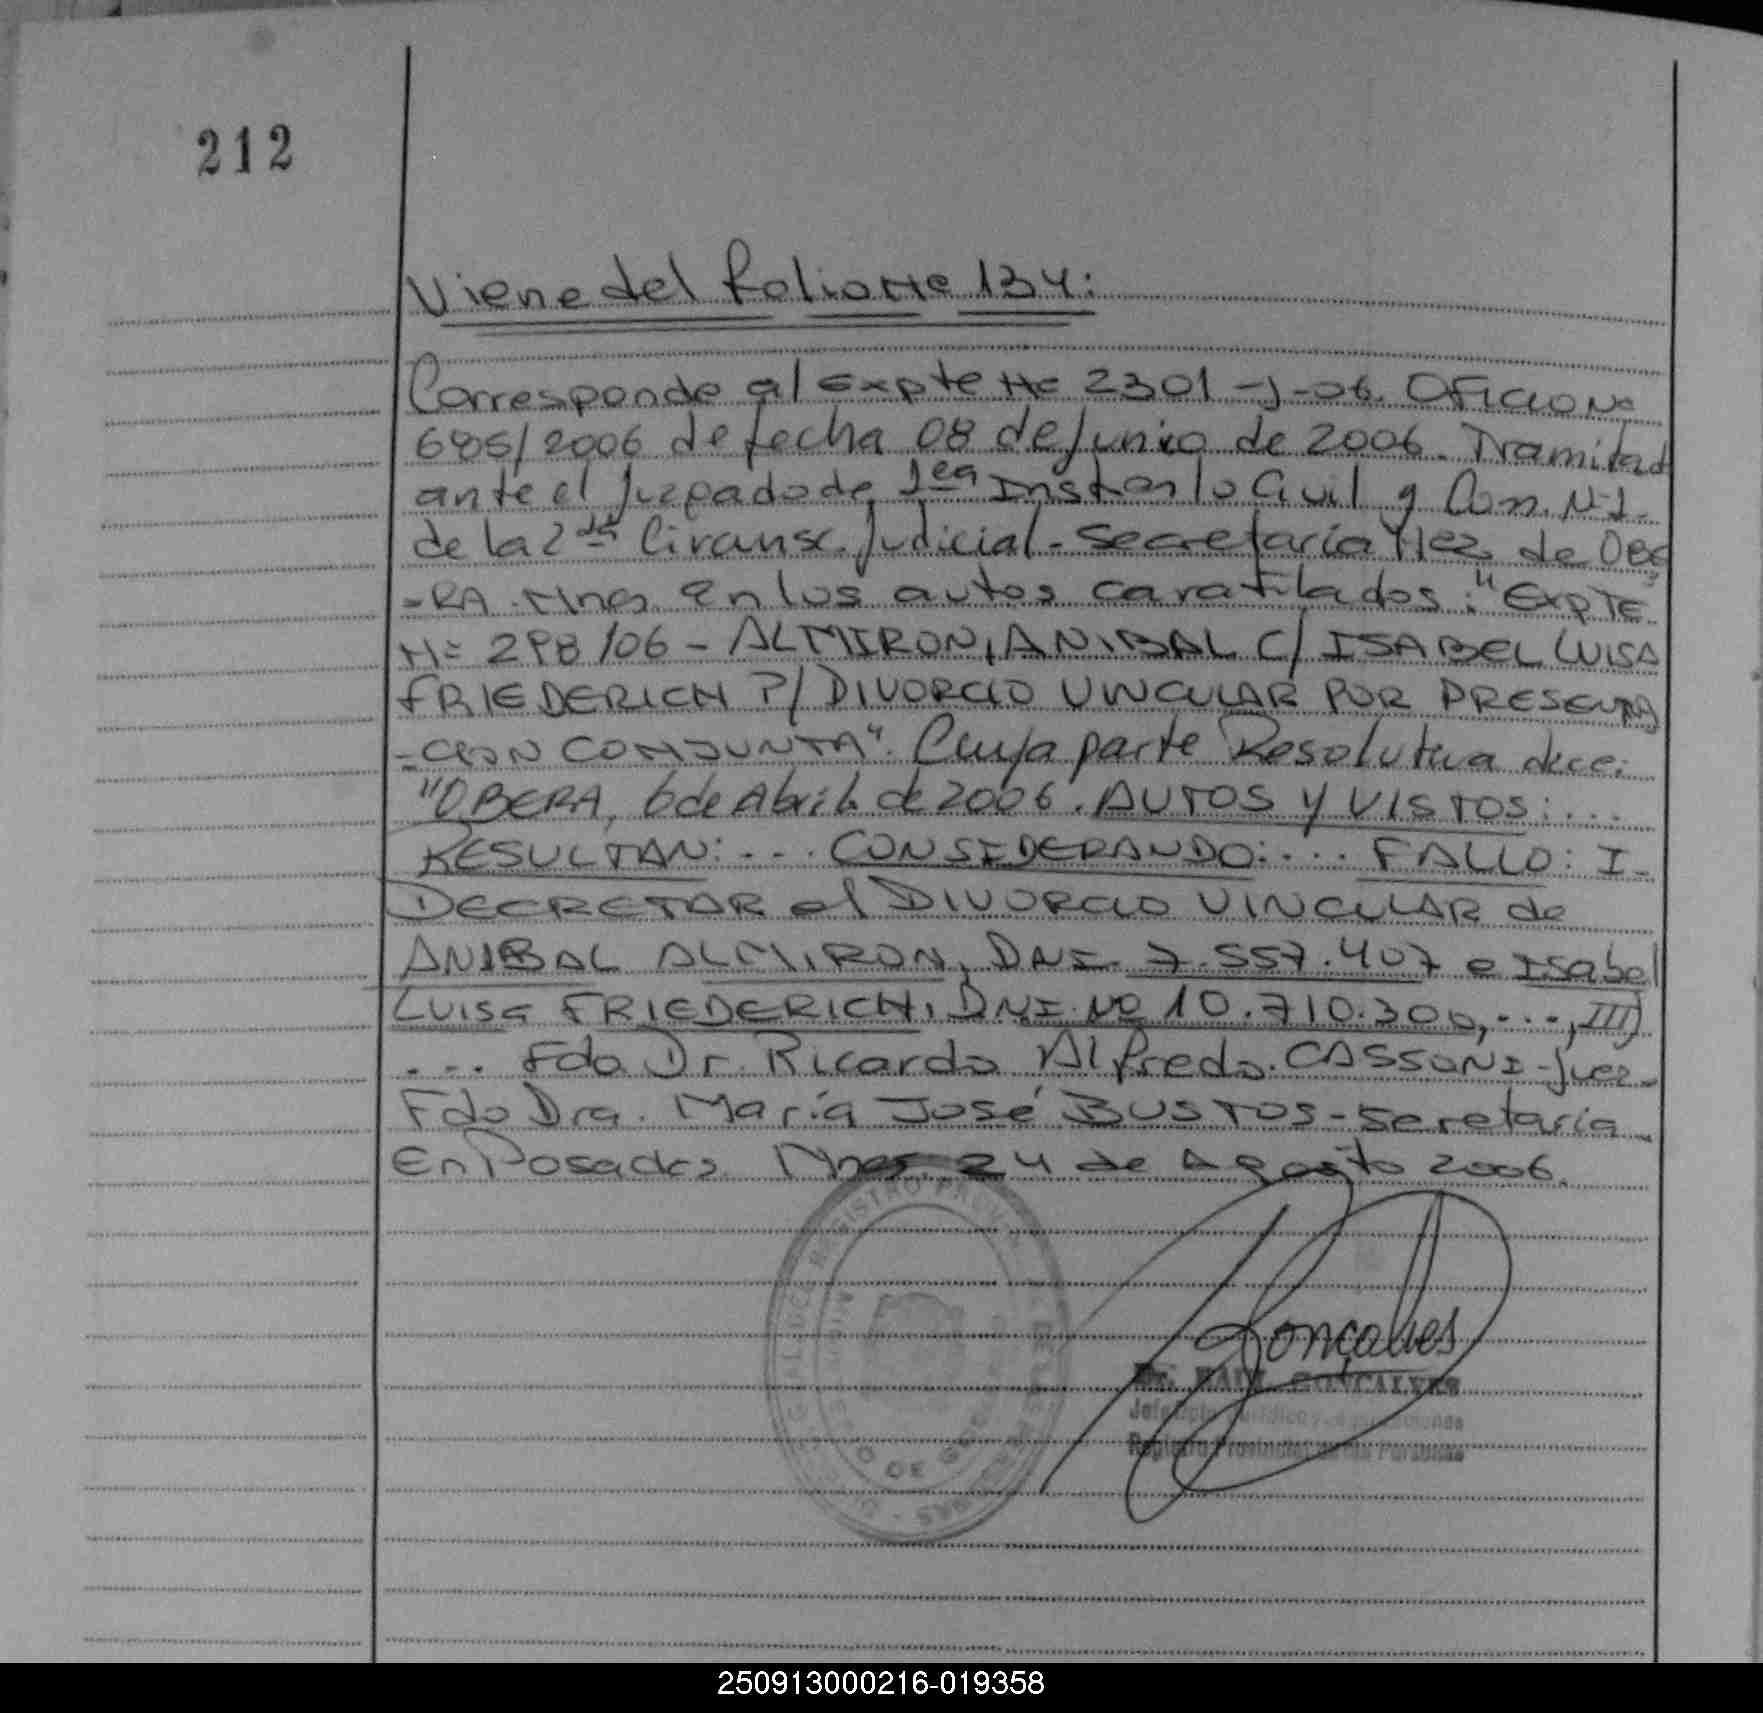 212
Viene del folio Nº 134:
Corresponde al Expte Nº 2301-J-06. OFICIO Nº
685/2006 de fecha 08 de Junio de 2006. Tramitad
ante el Juzgado de 1era Civil y Com. Nº 1-
de la 2da Circunsc. Judicial - Secretaría de OBE
-RA. Mnes en los autos caratulados: "EXPTE.
Nº 298/06 - ALMIRON, ANIBAL C/ ISABEL LUISA
FRIEDERICH P/ DIVORCIO VINCULAR POR PRESENTA
-CION CONJUNTA". Cuya parte Resolutiva dice:
"OBERA, 6 de Abril de 2006. AUTOS Y VISTOS: ...
RESULTAN: ... CONSIDERANDO: ... FALLO: I-
DECRETAR el DIVORCIO VINCULAR de
ANIBAL ALMIRON, DNI. 7.557.407 e Isabel
LUISA FRIEDERICH, DNI. Nº 10.710.300, ..., III)
... Fdo Dr. Ricardo Alfredo CASSONI - Juez -
Fdo Dra. María José BUSTOS - Secretaria -
En Posadas. Mnes. 24 de Agosto 2006.
Gonçalves
Dr. RAUL GONÇALVES
Registro Provincial de las Personas
250913000216-019358